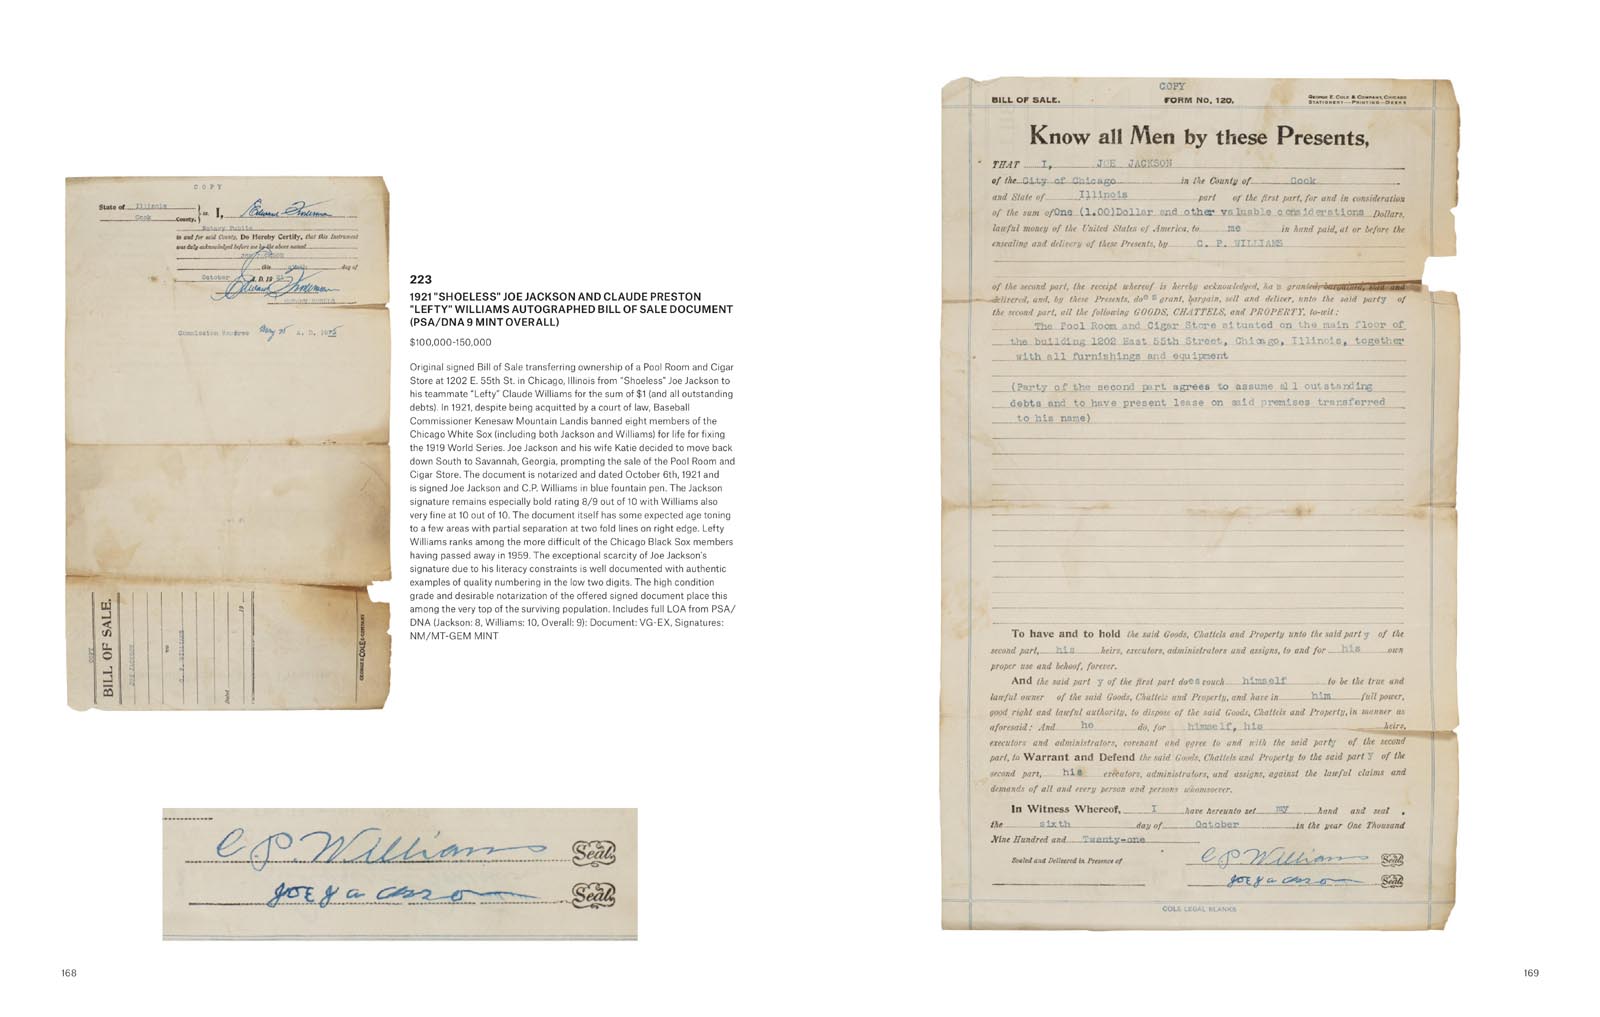 COPY
State of Illinois
Cook County. } ss. I, Edward
Notary Public
in and for said County, Do Hereby Certify, that this Instrument
was duly acknowledged before me by the above named
this day of
October A. D. 19
Edward
NOTARY PUBLIC
Commission Expires May 25 A. D. 19
BILL OF SALE.
COPY
JOE JACKSON
TO
C. P. WILLIAMS
Dated 19
GEORGE E COLE & COMPANY
223
1921 "SHOELESS" JOE JACKSON AND CLAUDE PRESTON
"LEFTY" WILLIAMS AUTOGRAPHED BILL OF SALE DOCUMENT
(PSA/DNA 9 MINT OVERALL)
$100,000-150,000
Original signed Bill of Sale transferring ownership of a Pool Room and Cigar
Store at 1202 E. 55th St. in Chicago, Illinois from "Shoeless" Joe Jackson to
his teammate "Lefty" Claude Williams for the sum of $1 (and all outstanding
debts). In 1921, despite being acquitted by a court of law, Baseball
Commissioner Kenesaw Mountain Landis banned eight members of the
Chicago White Sox (including both Jackson and Williams) for life for fixing
the 1919 World Series. Joe Jackson and his wife Katie decided to move back
down South to Savannah, Georgia, prompting the sale of the Pool Room and
Cigar Store. The document is notarized and dated October 6th, 1921 and
is signed Joe Jackson and C.P. Williams in blue fountain pen. The Jackson
signature remains especially bold rating 8/9 out of 10 with Williams also
very fine at 10 out of 10. The document itself has some expected age toning
to a few areas with partial separation at two fold lines on right edge. Lefty
Williams ranks among the more difficult of the Chicago Black Sox members
having passed away in 1959. The exceptional scarcity of Joe Jackson's
signature due to his literacy constraints is well documented with authentic
examples of quality numbering in the low two digits. The high condition
grade and desirable notarization of the offered signed document place this
among the very top of the surviving population. Includes full LOA from PSA/
DNA (Jackson: 8, Williams: 10, Overall: 9): Document: VG-EX, Signatures:
NM/MT-GEM MINT
C. P. Williams Seal
JOE Jackson Seal
168
COPY
BILL OF SALE. FORM NO. 120. GEORGE E. COLE & COMPANY, CHICAGO
STATIONERY--PRINTING--DESKS
Know all Men by these Presents,
THAT I, JOE JACKSON
of the City of Chicago in the County of Cook
and State of Illinois part of the first part, for and in consideration
of the sum of One (1.00) Dollar and other valuable considerations Dollars,
lawful money of the United States of America, to me in hand paid, at or before the
ensealing and delivery of these Presents, by C. P. WILLIAMS
of the second part, the receipt whereof is hereby acknowledged, ha s granted, bargained, sold and
delivered, and, by these Presents, do es grant, bargain, sell and deliver, unto the said party of
the second part, all the following GOODS, CHATTELS, and PROPERTY, to-wit:
The Pool Room and Cigar Store situated on the main floor of
the building 1202 East 55th Street, Chicago, Illinois, together
with all furnishings and equipment
(Party of the second part agrees to assume all outstanding
debts and to have present lease on said premises transferred
to his name)
To have and to hold the said Goods, Chattels and Property unto the said part y of the
second part, his heirs, executors, administrators and assigns, to and for his own
proper use and behoof, forever.
And the said part y of the first part does vouch himself to be the true and
lawful owner of the said Goods, Chattels and Property, and have in him full power,
good right and lawful authority, to dispose of the said Goods, Chattels and Property, in manner as
aforesaid: And he do, for himself, his heirs,
executors and administrators, covenant and agree to and with the said party of the second
part, to Warrant and Defend the said Goods, Chattels and Property to the said part y of the
second part, his executors, administrators, and assigns, against the lawful claims and
demands of all and every person and persons whomsoever.
In Witness Whereof, I have hereunto set my hand and seal,
the sixth day of October in the year One Thousand
Nine Hundred and Twenty-one
Sealed and Delivered in Presence of C. P. Williams Seal
JOE Jackson Seal
COLE LEGAL BLANKS
169